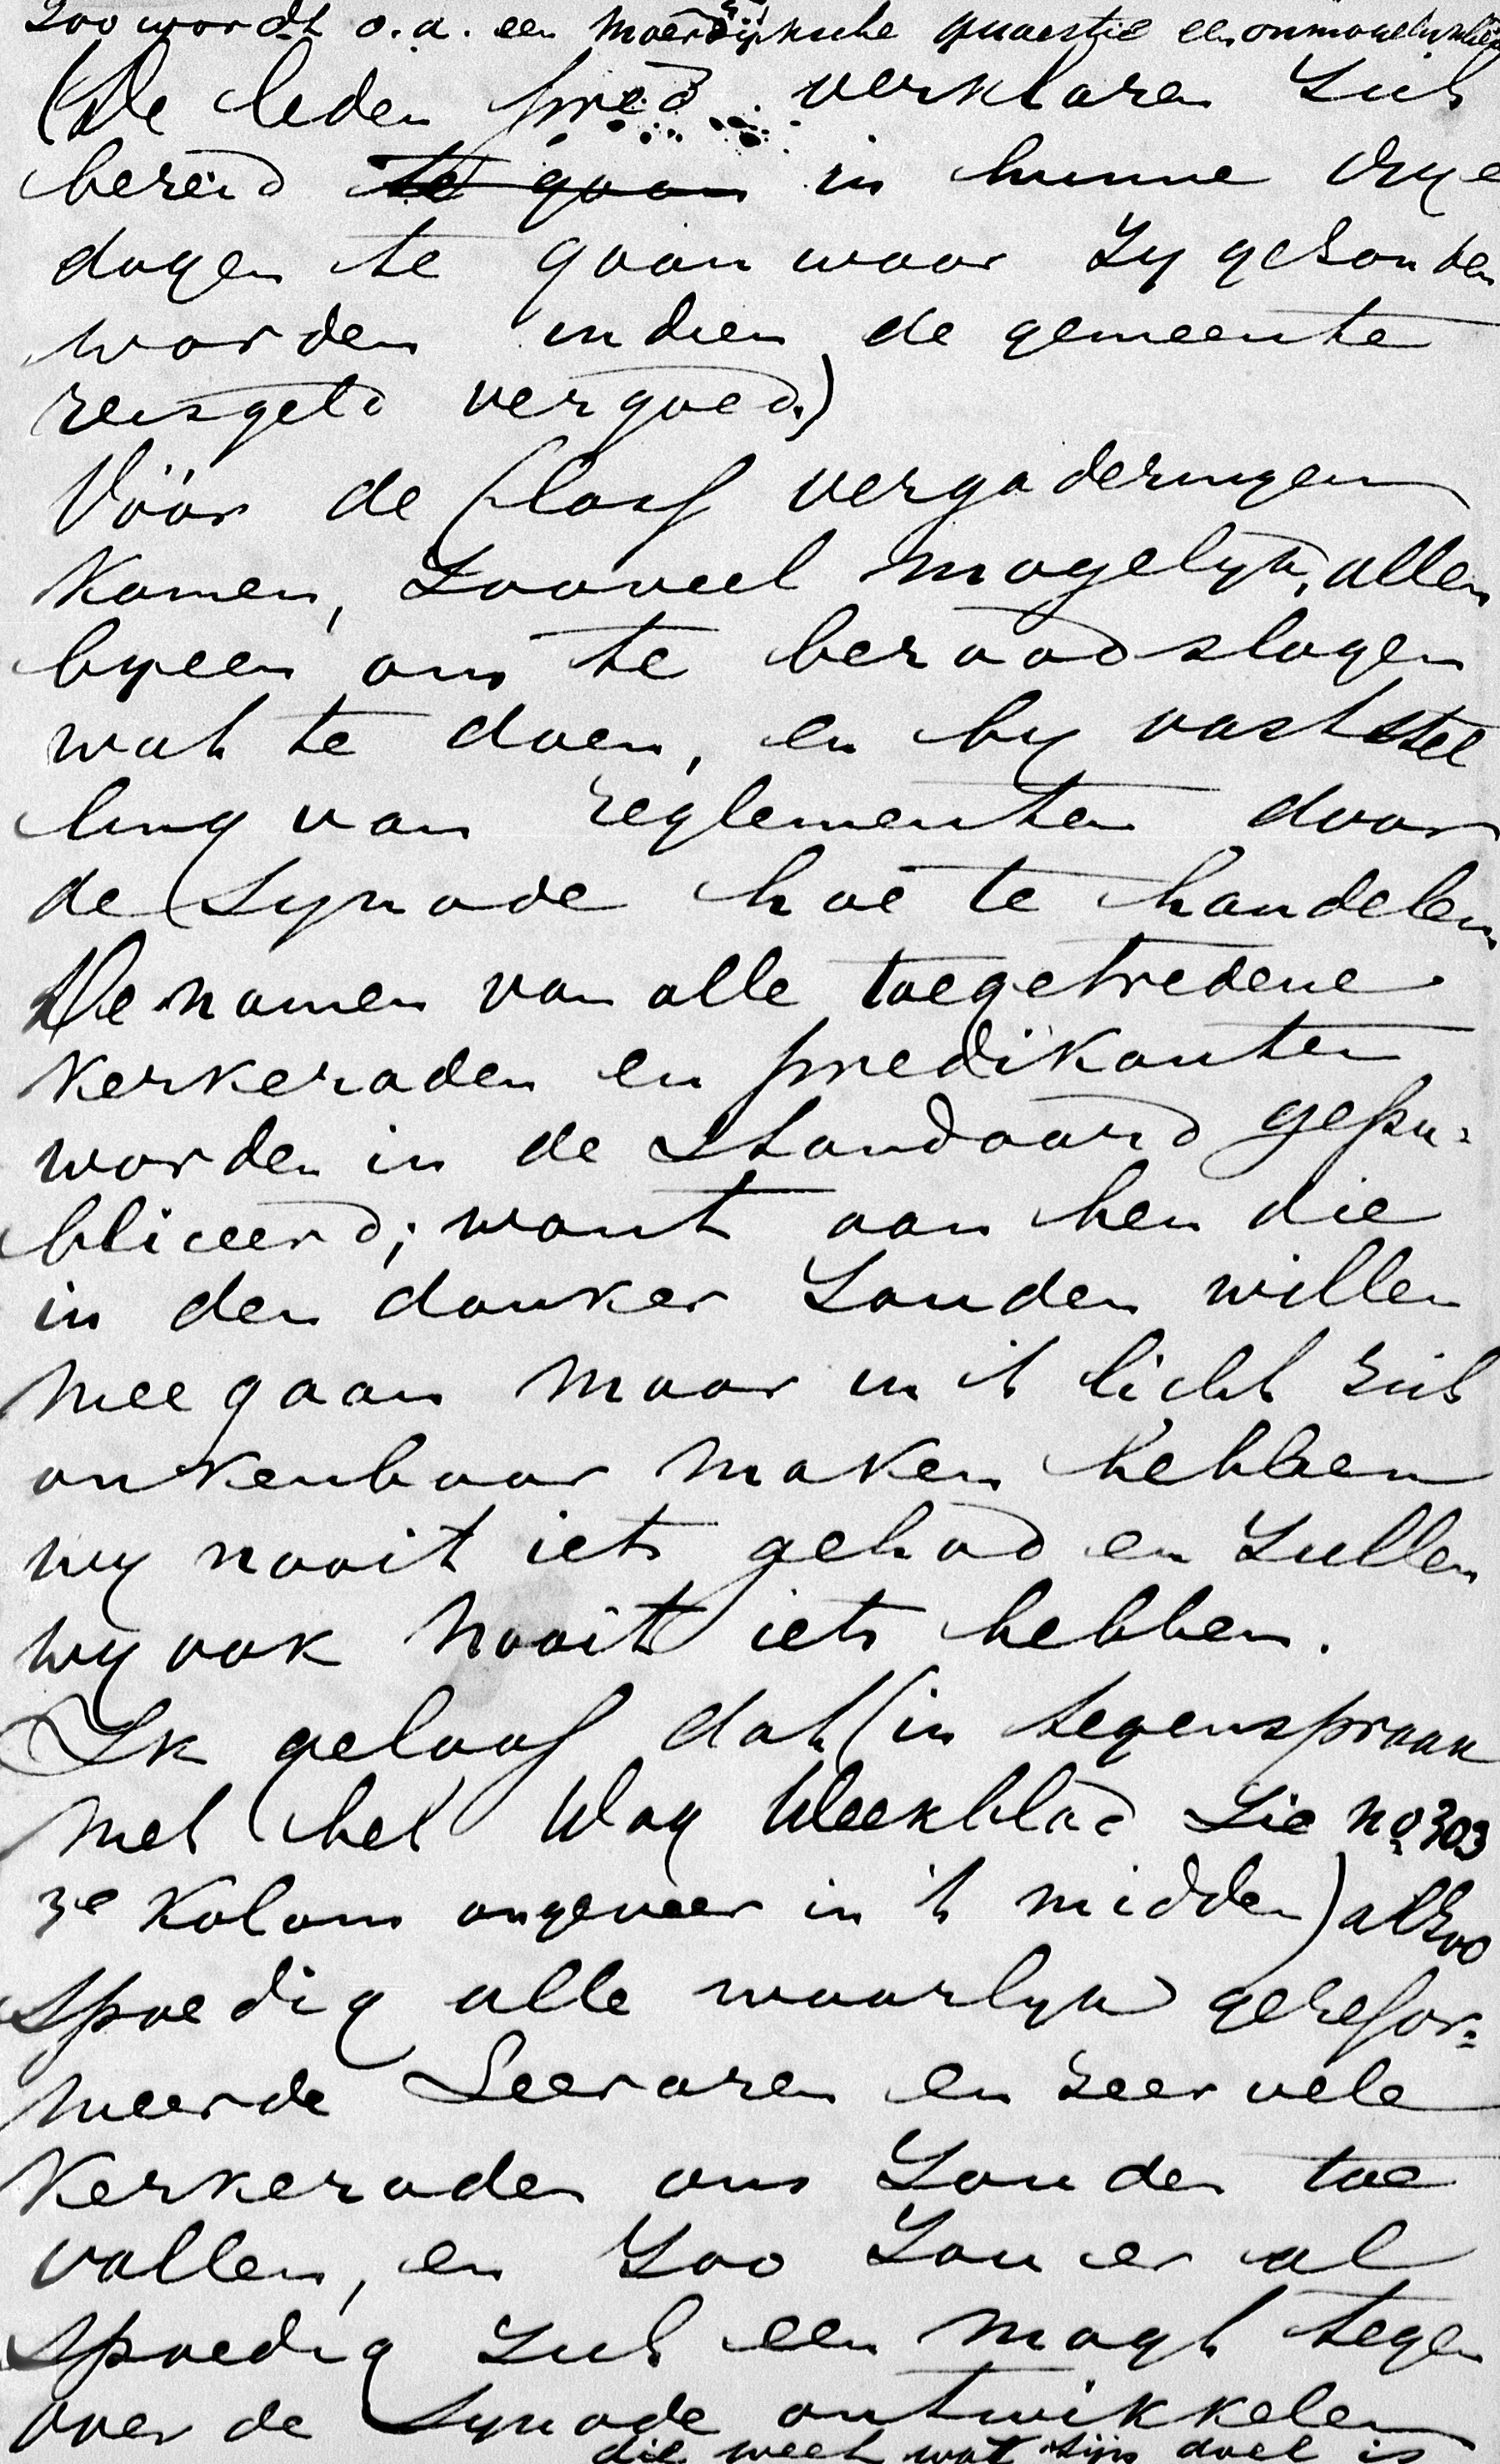 Zoo wordt o.a. een Moerdijksche quaestie een onmogelykheid
(De leden pred. verklaren zich
bereid te gaan in hunne vrye
dagen te gaan waar zy gezonden
worden indien de gemeente
reisgeld vergoed.)
Vóór de Class vergaderingen
komen, zooveel mogelyk, allen
byeen om te beraadslagen
wat te doen, en by vaststel
ling van reglementen door
de Synode hoe te handelen
De namen van alle toegetredene
kerkeraden en predikanten
worden in de Standaard gepu-
bliceerd; want aan hen die
in den donker zouden willen
meegaan maar in 't licht zich
onkenbaar maken hebben
wy nooit iets gehad en zullen
wy ook nooit iets hebben.
Ik geloof dat (in tegenspraak
met het Wag Weekblad zie no 303
3e kolom ongeveer in 't midden) al zoo
spoedig alle waarlyk gerefor-
meerde Leeraren en zeer vele
kerkeraden ons zouden toe
vallen, en zoo zou er al
spoedig zich een magt tegen
over de Synode ontwikkelen
die weet wat zijn doel is